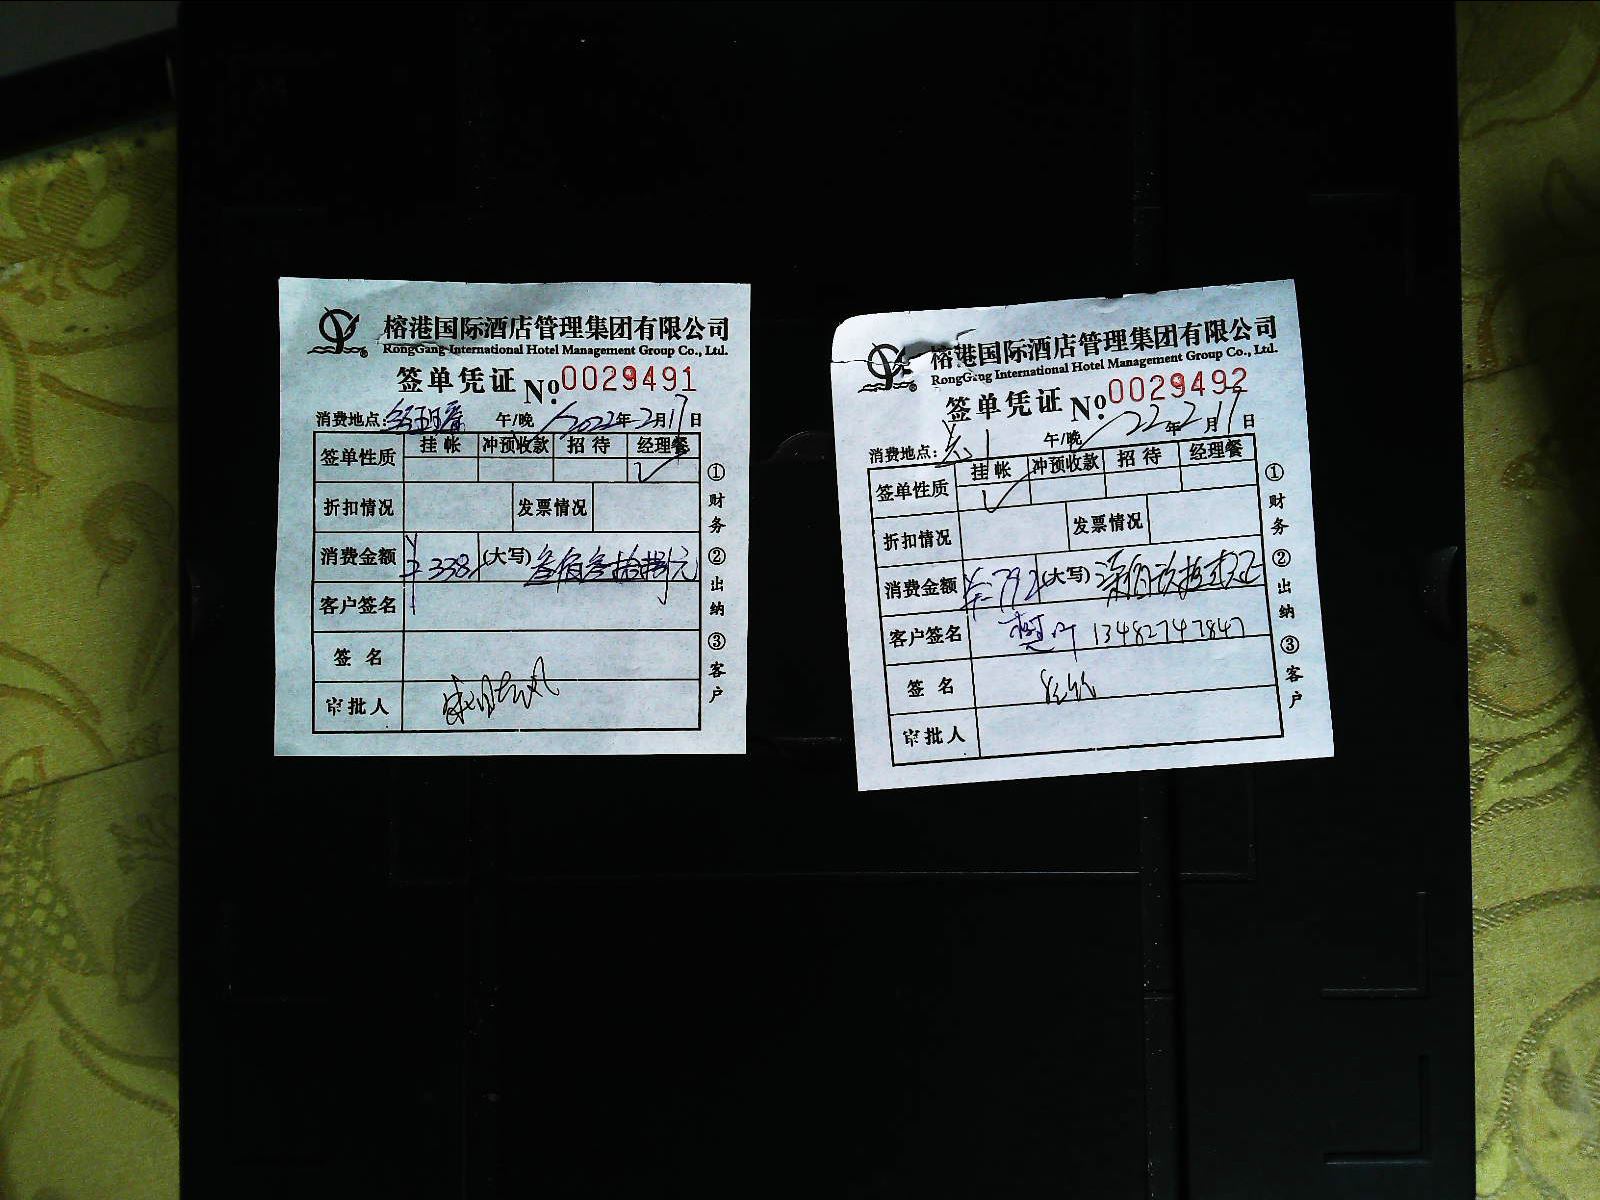 榕港国际酒店管理集团有限公司
RongGang International Hotel Management Group Co., Ltd.
签单凭证 No. 0029491
消费地点: 午/晚 2022年2月17日
签单性质 挂帐 冲预收款 招待 经理餐
✓
折扣情况 发票情况
消费金额 ¥338 (大写) 叁佰叁拾捌元
客户签名
签名
审批人
①财务 ②出纳 ③客户
榕港国际酒店管理集团有限公司
RongGang International Hotel Management Group Co., Ltd.
签单凭证 No. 0029492
消费地点: 午/晚 22年2月17日
签单性质 挂帐 冲预收款 招待 经理餐
✓
折扣情况 发票情况
消费金额 ¥792 (大写) 柒佰玖拾贰元正
客户签名 13482747847
签名
审批人
①财务 ②出纳 ③客户